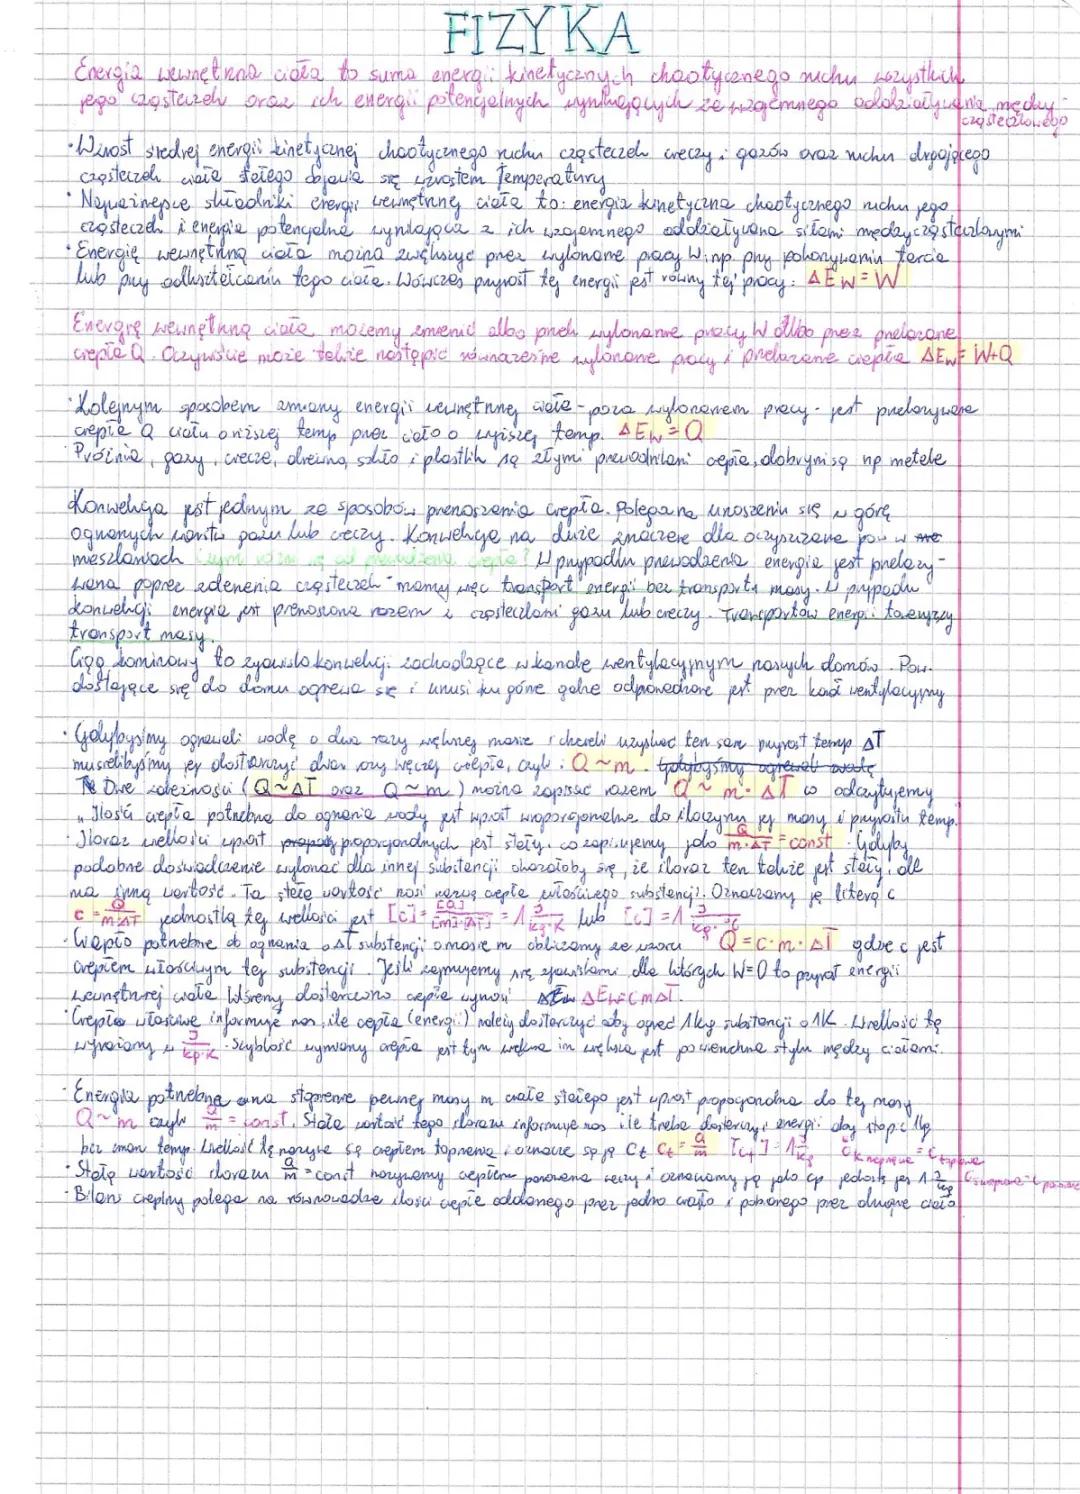 FIZYKA
Energia wewnętrzna ciała to suma energii kinetycznych chaotycznego ruchu wszystkich
jego cząsteczek oraz ich energii potencjalnych wynikających ze wzajemnego oddziaływania między-
cząsteczkowego
· Wzrost średniej energii kinetycznej chaotycznego ruchu cząsteczek cieczy i gazów oraz ruchu drgającego
cząsteczek ciała stałego objawia się wzrostem temperatury
· Najważniejsze składniki energii wewnętrznej ciała to: energia kinetyczna chaotycznego ruchu jego
cząsteczek i energia potencjalna wynikająca z ich wzajemnego oddziaływania siłami międzycząsteczkowymi
· Energię wewnętrzną ciała można zwiększyć przez wykonanie pracy W, np. przy pokonywaniu tarcia
lub przy odkształcaniu tego ciała. Wówczas przyrost tej energii jest równy tej pracy: ΔEw=W
Energię wewnętrzną ciała możemy zmienić albo przez wykonanie pracy W albo przez przekazanie
ciepła Q. Oczywiście może także nastąpić równoczesne wykonanie pracy i przekazanie ciepła ΔEw=W+Q
· Kolejnym sposobem zmiany energii wewnętrznej ciała - poza wykonaniem pracy - jest przekazywanie
ciepła Q ciału o niższej temp przez ciało o wyższej temp. ΔEw=Q
· Próżnia, gazy, ciecze, drewno, szkło i plastik są złymi przewodnikami ciepła, dobrymi są np metale
Konwekcja jest jednym ze sposobów przenoszenia ciepła. Polega na unoszeniu się w górę
ogrzanych warstw gazu lub cieczy. Konwekcja ma duże znaczenie dla oczyszczania pow w
mieszkaniach Czym różni się od przewodzenia ciepła? W przypadku przewodzenia energia jest przekazy-
wana poprzez zderzenia cząsteczek - mamy więc transport energii bez transportu masy. W przypadku
konwekcji energia jest przenoszona razem z cząsteczkami gazu lub cieczy. Transportowi energii towarzyszy
transport masy.
Ciąg kominowy to zjawisko konwekcji zachodzące w kanale wentylacyjnym naszych domów. Pow.
dostające się do domu ogrzewa się i unosi ku górze gdzie odprowadzone jest przez kanał wentylacyjny
· Gdybyśmy ogrzewali wodę o dwa razy większej masie i chcieli uzyskać ten sam przyrost temp ΔT
musielibyśmy jej dostarczyć dwa razy więcej ciepła, czyli: Q~m. Gdybyśmy ogrzewali wodę
Dwie zależności (Q~ΔT oraz Q~m) można zapisać razem Q~m·ΔT co odczytujemy
„Ilość ciepła potrzebna do ogrzania wody jest wprost proporcjonalna do iloczynu jej masy i przyrostu temp.
· Iloraz wielkości wprost proporcjonalnych jest stały, co zapisujemy jako Q/m·ΔT=const. Gdyby
podobne doświadczenie wykonać dla innej substancji okazałoby się, że iloraz ten także jest stały, ale
ma inną wartość. Ta stała wartość nosi nazwę ciepła właściwego substancji. Oznaczamy ją literą c
c=Q/m·ΔT jednostką tej wielkości jest [c]=[Q]/[m]·[ΔT]=1 J/kg·K lub [c]=1 J/kg·°C
· Ciepło potrzebne do ogrzania o ΔT substancji o masie m obliczamy ze wzoru Q=c·m·ΔT gdzie c jest
ciepłem właściwym tej substancji. Jeśli zajmujemy się zjawiskami dla których W=0 to przyrost energii
wewnętrznej ciała któremu dostarczono ciepła wynosi ΔEw=cmΔT.
· Ciepło właściwe informuje nas, ile ciepła (energii) należy dostarczyć aby ogrzać 1kg substancji o 1K. Wielkość tę
wyrażamy w J/kg·K. Szybkość wymiany ciepła jest tym większa im większa jest powierzchnia styku między ciałami.
· Energia potrzebna na stopienie pewnej masy m ciała stałego jest wprost proporcjonalna do tej masy
Q~m czyli Q/m=const. Stała wartość tego ilorazu informuje nas ile trzeba dostarczyć energii aby stopić 1kg
bez zmian temp. Wielkość tę nazywa się ciepłem topnienia i oznacza się ją Ct Ct=Q/m [Ct]=1 J/kg Ckrzepnięcia=Ctopnienia
· Stałą wartość ilorazu Q/m=const nazywamy ciepłem parowania cieczy i oznaczamy ją jako cp jednostk jej 1 J/kg Cskraplania=Cparowania
· Bilans cieplny polega na równowadze ilości ciepła oddanego przez jedno ciało i pobranego przez drugie ciało